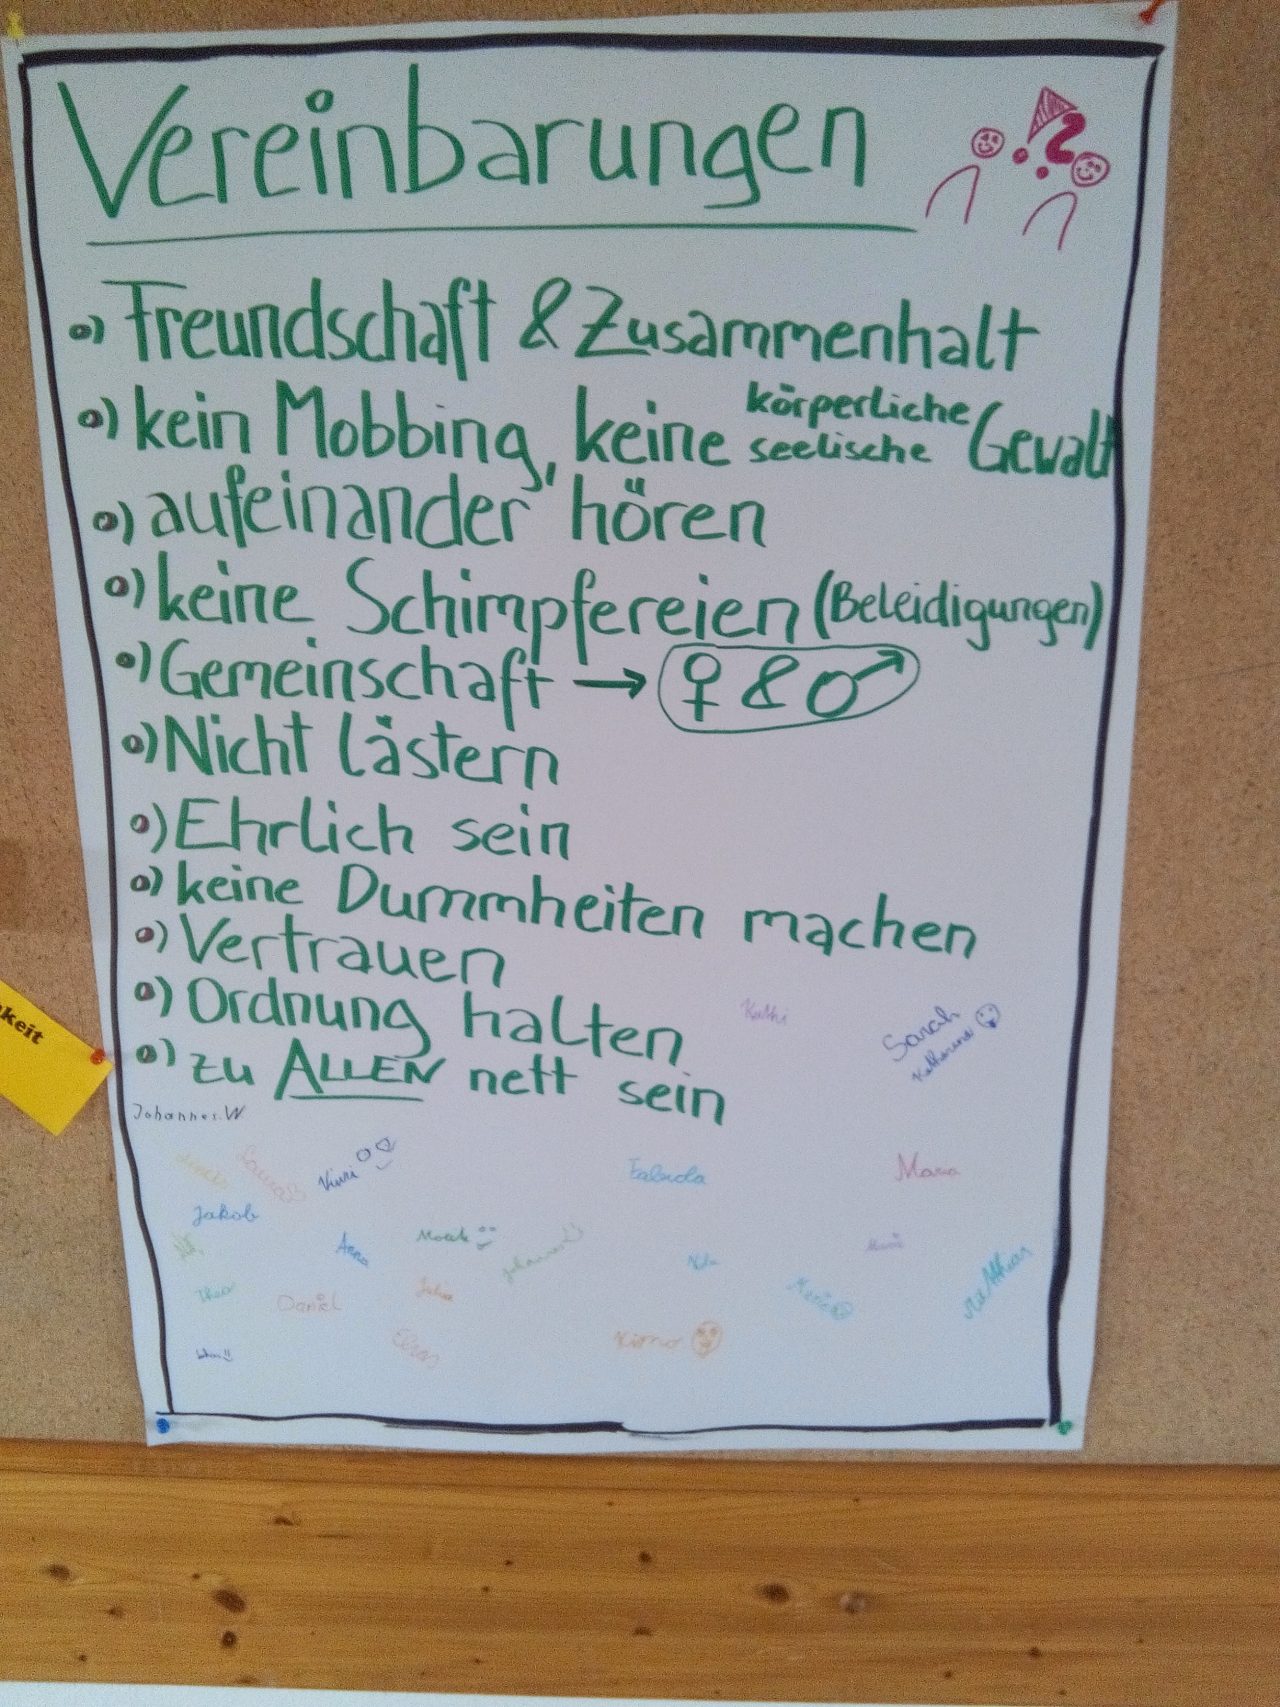 Vereinbarungen
Freundschaft & Zusammenhalt
kein Mobbing, keine körperliche seelische Gewalt
aufeinander hören
keine Schimpfereien (Beleidigungen)
Gemeinschaft → ♀ & ♂
Nicht lästern
Ehrlich sein
keine Dummheiten machen
Vertrauen
Ordnung halten
zu ALLEN nett sein
keit
Kathi
Sarah
Katharina
Johannes.W
Laura
Vivi
Maria
Jakob
Anna
Theo
Daniel
Julia
Matthias
Elias
Kimo